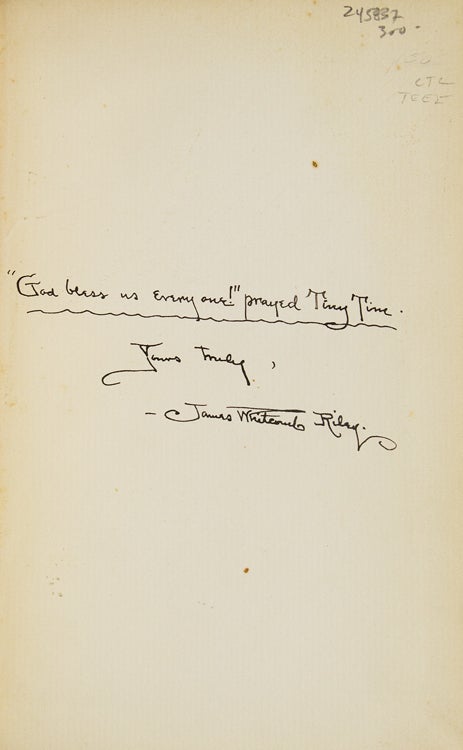 245837
300-
CTL
TEEE
"God bless us every one!" prayed Tiny Tim.
Yours truly,
- James Whitcomb Riley.